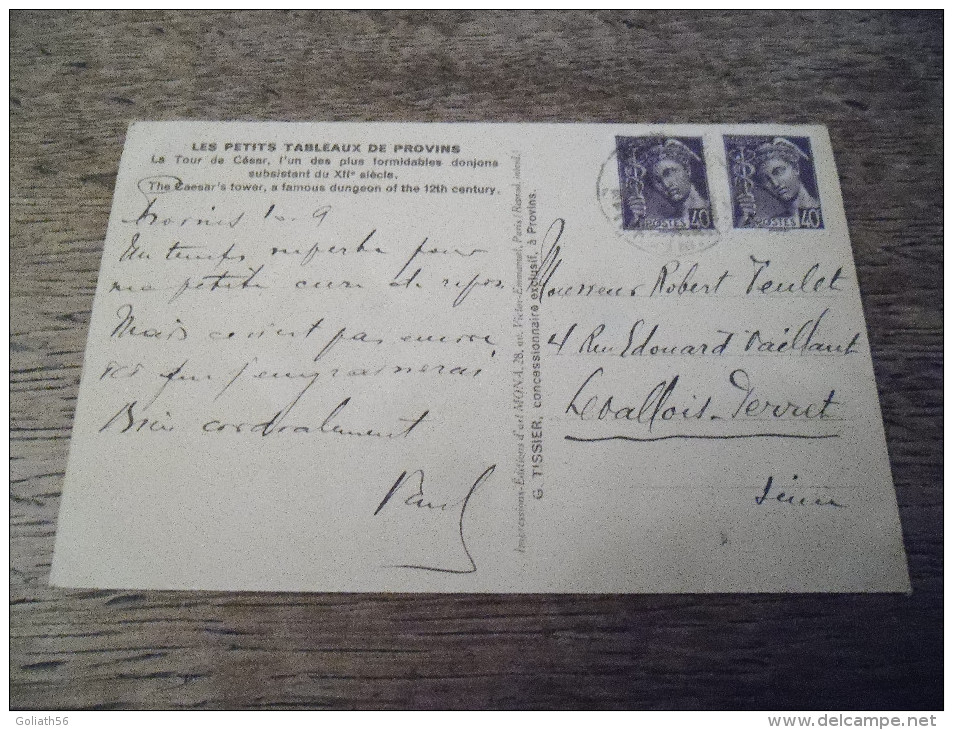 LES PETITS TABLEAUX DE PROVINS
La Tour de César, l'un des plus formidables donjons
subsistant du XIIe siècle.
The Caesar's tower, a famous dungeon of the 12th century.
Provins 1er 9
Un temps superbe pour
ma petite cure de repos
Mais ce n'est pas encore
ici que j'engraisserai
Bien cordialement
Paul
Impressions-Éditions d'art MONA, 28, av. Victor-Emmanuel, Paris
G. TISSIER, concessionnaire exclusif, à Provins.
POSTES 40
POSTES 40
Monsieur Robert Teulet
4 Rue Edouard Vaillant
Levallois-Perret
Seine
Goliath56
www.delcampe.net